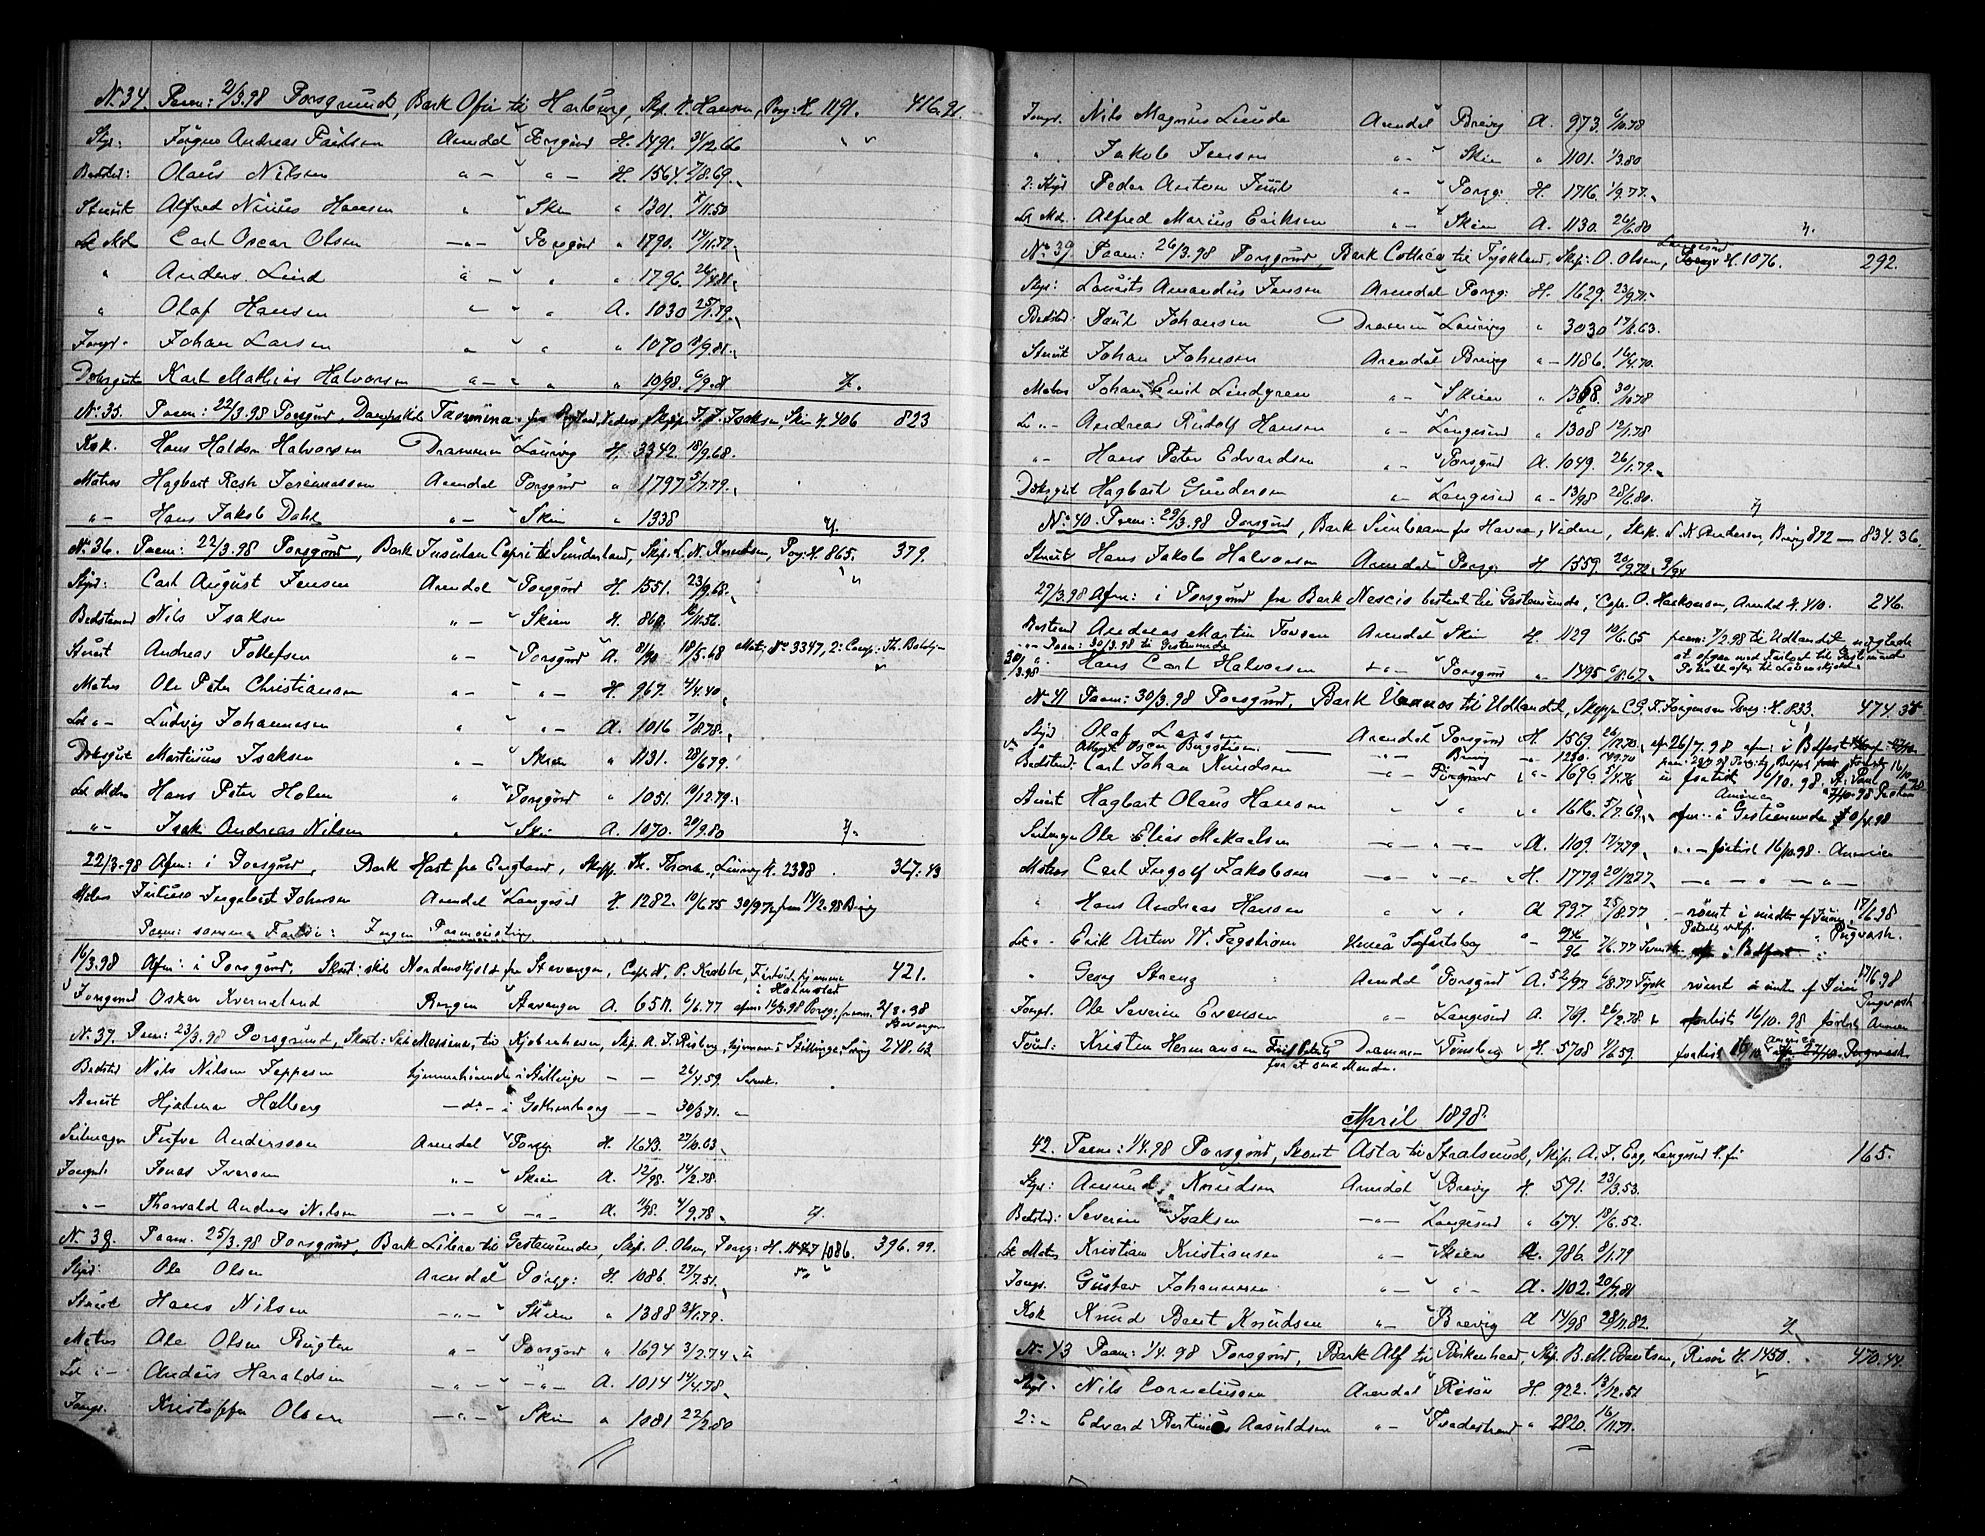 No 34. Paam: 2/3.98 Porsgrund, Bark Ofir til Harburg, Skp. H. Hansen, Porsg: H. 1191. 416.91.
Styr: Jörgen Andreas Paulsen Arendal Porsgrund H. 1491. 31/12.66
Bedstd: Olaus Nilsen " - " - H. 1564. 7/8.69.
Stuert Alfred Nicius Hansen " Skien " 1301. 11.50
Let Md Carl Oscar Olsen - " - Porsgrund " 1790. 14/11.77.
" Anders Lind " - " " 1796. 26/4.81.
" Olaf Hansen " - " A. 1030 25/1.79.
Jungd. Johan Larsen " " " 1070 18/9.81.
Dæksgut Karl Mathias Halvorsen " - " " 10/98. 6/9.81
No 35. Paam: 22/3.98 Porsgrund, Dampskib Taormina fra England, Videre, Skipp. J. J. Isaksen, Skien H. 406 823
Kok. Hans Haldon Halvorsen Drammen Laurvig H. 3342. 18/9.68.
Matros Hagbart Resh Jeremiassen Arendal Porsgrund " 1797 5/7.79.
" - Hans Jakob Dahl " - Skien " 1338
No 36. Paam: 22/3.98 Porsgrund, Bark Insulan Capri til Sunderland, Skp. L. N. Knudsen, Porsg: H. 865. 379.
Styrd: Carl August Jensen Arendal Porsgrund H. 1551. 23/9.68.
Bedstemd Nils Isaksen " - Skien H. 860. 16/11.56.
Stuert Andreas Tollefsen " - Porsgrund A. 81/90 18/5.68 Mat: No 3347, 2: Comp: Th. Batalj:
Matros Ole Peter Christiansen " - " - H. 967. 4/4.40
Let " - Ludvig Johannesen " " A. 1016 7/8.78.
Dæksgut Martinius Isaksen " - Skien " 1131. 28/6.79.
Let Matros Hans Peter Holm " Porsgrund " 1051. 10/12.79.
" - Isak Andreas Nilsen " Skien A. 1070. 20/9.80
22/3.98 Afm: i Porsgrund, Bark Høst fra England, Skipp. Th. Thorsen, Laurvig H. 2388. 367.43
Matros Julius Ingebart Johnsen Arendal Langesund H. 1282. 10/6.75 30/97 paam 14/2.98 Brevig
Paam: samme Fartöi: Ingen Paamönstring
16/3.98 Afm: i Porsgrund, Skont: skib Nordenskjold fra Stavanger, Capt. N. P. Krabbe, Fartöit hjemme i Halmstad 421.
Jungmd Oskar Kverneland Bergen Stavanger A. 65 N. 6/1.77 afm: 16/3.98 Porsg: paam. 2/2.98 Stavanger
No 37. Paam: 23/3.98 Porsgrund, Skont: Skib Messina, til Kjøbenhavn, Skp. A. F. Risberg, hjemme i Stillinge, Sverig 248.63
Bedstd Nils Nilsen Jeppesen hjemmehörende i Stillinge - - 26/4.59. Svensk.
Stuert Hjalmar Hallberg - do - i Gothenborg - - 30/3.71. "
Seilmager Tufve Andersson Arendal Porsgr H. 1643. 27/10.63
Jungmd: Jonas Iversen " - Skien A. 12/98. 14/2.78.
" - Thorvald Andreas Nilsen - " - - " - A. 11/98. 4/9.78
No 38. Paam. 25/3.98 Porsgrund, Bark Libra til Gestemünde, Skp. O. Olsen, Porsg: H. 1086. 396.99.
Styrd: Ole Olsen Arendal Porsg: H. 1086. 27/7.51.
Stuert Hans Nilsen - " - Skien " 1388 31/1.79.
Matros Ole Olsen Bugten " - Porsgrund " 1694 3/2.74.
Let " - Anders Haraldsen - " - - " - A. 1014 14/4.78.
Jungd. Kristoffer Olsen - " - Skien " 1081 22/2.80
Jungd. Nils Magnus Lunde Arendal Brevig A. 973. 6/10.78
" Jakob Jensen " - Skien " 1101. 1/3.80
2: Styrd Peder Anton Juul " - Porsg: H. 1716. 1/9.77.
Let Md. Alfred Marius Eriksen " - Skien A. 1130. 26/6.80
No 39 Paam: 26/3.98 Porsgrund, Bark Cottica til Tyskland, Skp: O. Olsen, Langesund H. 1076. 292.
Styr: Laurits Amandus Jensen Arendal Porsg: H. 1629. 23/9.71.
Bedstd: Paul Johansen Drammen Laurvig " 3030 17/6.63.
Stuert Johan Johnsen Arendal Brevig " - 1186. 16/4.70.
Matros Johan Emil Lindgren " - Skien " 1368. 30/10.78
Let " - Andreas Rudolf Hansen " - Langesund " 1308 12/1.78
" - Hans Peter Edvardsen " - Porsgrund A. 1049. 26/1.79.
Dæksgut Hagbart Gundersen " - Langesund " - 13/98 28/6.80.
No 40. Paam: 29/3.98 Porsgrund, Bark Sunbeam fra Havre, Videre, Skp. S. N. Andersen, Brevig 872 - 834.36.
Stuert Hans Jakob Halvorsen Arendal Porsg: H. 1559. 20/9.72. 3/94
29/3.98 Afm: i Porsgrund fra Bark Nescio bestemt til Gestemünde, Capt. O. Haakonsen, Arendal H. 410. 246.
Bestemd Andreas Martin Torsen Arendal Skien H. 1129 10/6.65 paam: 7/2.98 til Udlandet
" - Paam: 30/3.98 til Gestemünde
30/3.98 " Hans Carl Halvorsen " - Porsgrund " - 1495 6/8.67.
No 41 Paam: 30/3.98 Porsgrund, Bark Uranos til Udlandet, Skipp C. G. F. Jörgensen Porsg: H. 833. 474.38
Styrd Olaf Larsen Arendal Porsgrund H. 1569. 26/12.70. 26/7.98 afm: i Belfast
Oscar Bergstrøm " - Brevig 1230.
Bedstemd: Carl Johan Knudsen - " - Porsgrund " - 1696. 5/4.76 fratraadt 16/10.98. St. Paul
Stuert Hagbart Olaus Hansen " - " " 1616. 5/7.69. afm: i Gestemünde 30/4.98
Seilmager Ole Elias Mikaelsen " - " - A. 1109. 17/7.79. " - forlist 16/10.98. America
Matros Carl Ingolf Jakobsen - " - " - H. 1779. 20/12.77. - " - " - " -
" Hans Andreas Hansen " " A 997. 25/8.77 rømt i midten af Juni 17/6.98 Pugvash.
Let " Erik Artur W. Fagstrøm Umeå Sjöfartsbog " - 976/96 7/6.77 Svensk
" Georg Strenz Arendal Porsgrund A. 52/97 6/8.77 Tysk rømt i midten af Juni 17/6.98 Pugvash
Jungd. Ole Severin Evensen " - Langesund A. 769. 26/2.78 forlist 16/10.98 forlist America
Tømd: Kristen Hermansen Drammen Tønsberg H. 5708 4/6.59. forlist 16/10 America
April 1898.
42. Paam: 1/4.98 Porsgrund, Skont Asta til Stralsund, Skp. A. J. Eeg, Langesund 165.
Styr: Amund Knudsen Arendal Brevig H. 591. 23/3.53.
Bedstd: Severin Isaksen - " - Langesund " 674. 18/6.52.
Let Matros Kristian Kristiansen " - Skien A. 986. 8/1.79
Jungd. Gustav Johannesen " - " - A. 1102. 20/7.81
Kok Knud Bent Knudsen " - Brevig A 14/98 28/11.82.
No 43 Paam: 1/4.98 Porsgrund, Bark Alf til Birkenhead, Skp. B. M. Bentsen, Risør H. 1450. 470.44.
Styrd. Nils Corneliussen Arendal Risör H. 922. 13/12.51
2: " Edvard Bertinius Aasuldsen " - Tvedestrand " 2820. 16/11.71.